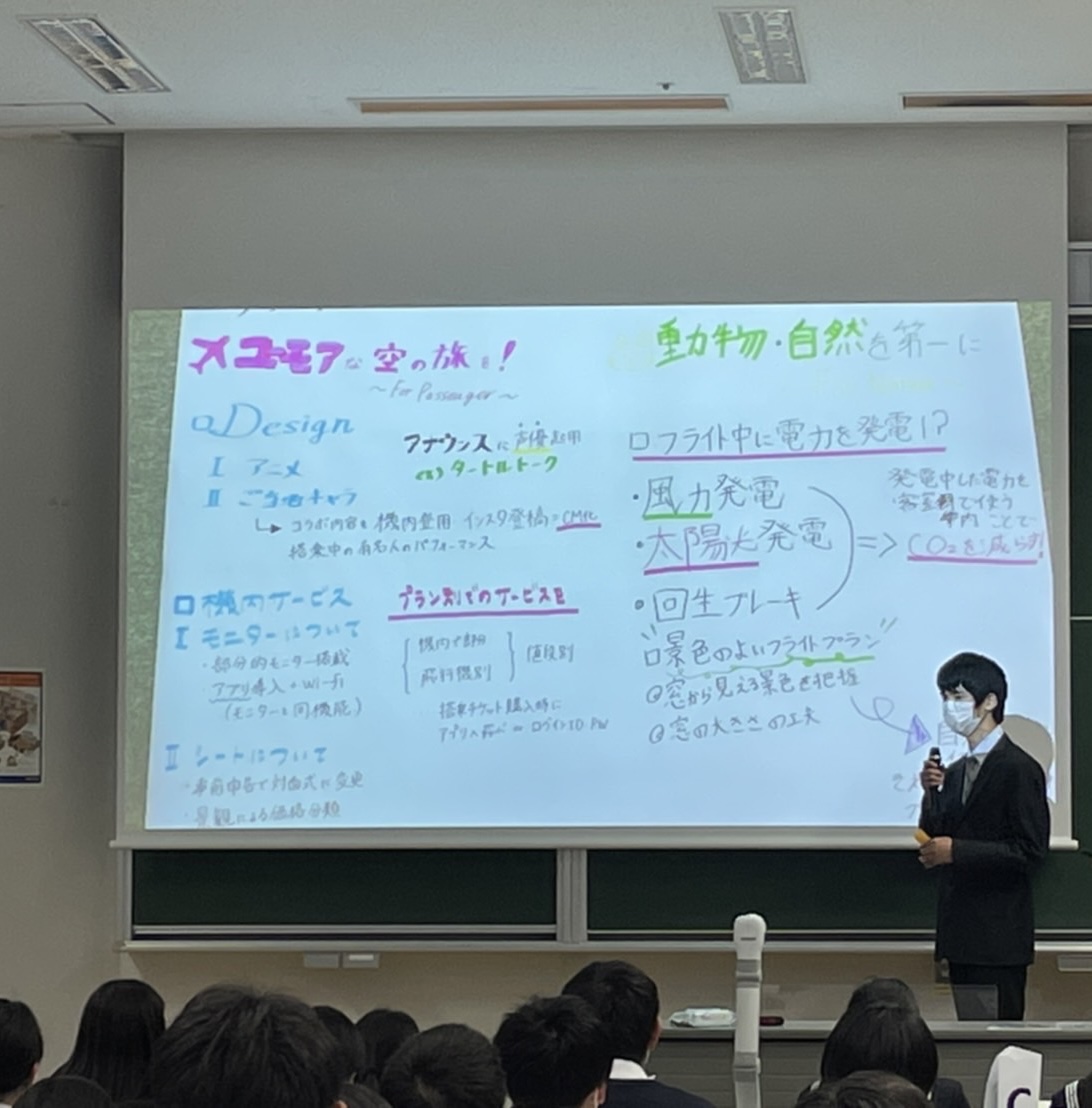 メユーモアな空の旅を!
~For Passenger~
□Design
I アニメ
II ご当地キャラ
↳ コラボ内容を機内登用・インスタ登稿=CM化
搭乗中の有名人のパフォーマンス
アナウンスに声優起用
(ex) タートルトーク
□機内サービス
I モニターについて
・部分的モニター搭載
・アプリ導入+Wi-fi
(モニターと同機能)
II シートについて
・事前申告で対面式に変更
・景観による価格分類
プラン別でのサービスを
機内で部分
飛行機別
値段別
搭乗チケット購入時に
ログインID PW
動物・自然を第一に
□フライト中に電力を発電!?
・風力発電
・太陽光発電
・回生ブレーキ
発電中した電力を
客室
機内で使う
ことで
=> CO2を減らす!
□景色のよいフライトプラン
@窓から見える景色を把握
@窓の大きさの工夫
C